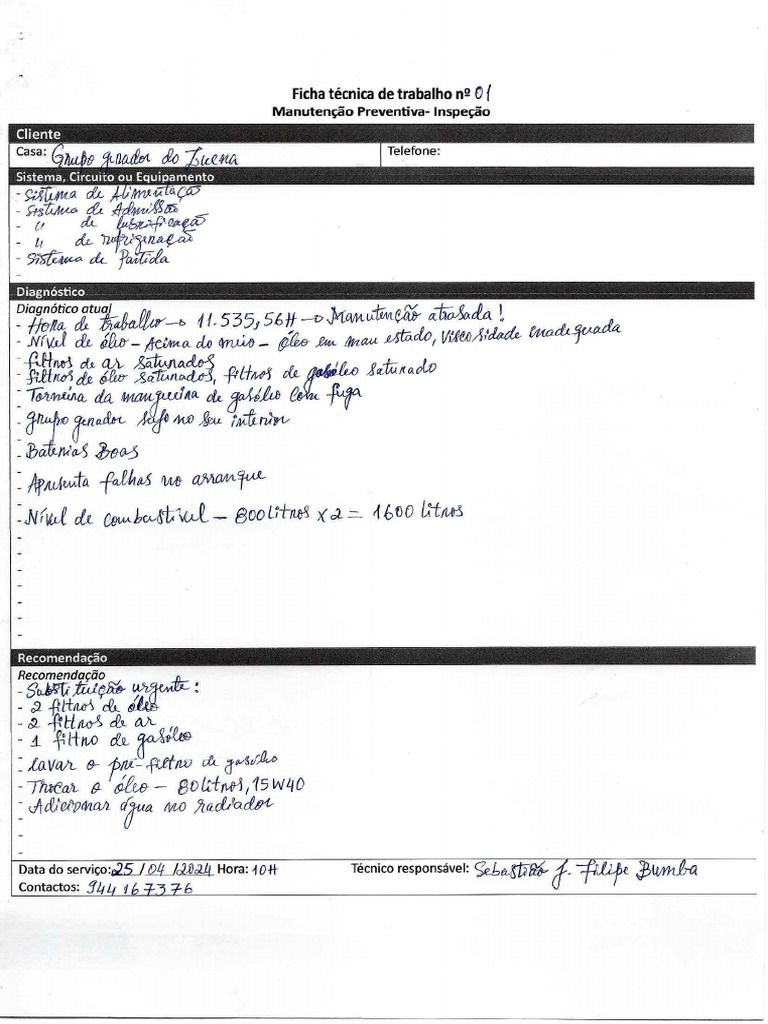 Ficha técnica de trabalho nº 01
Manutenção Preventiva- Inspeção
Cliente
Casa: Grupo gerador do Luena
Telefone:
Sistema, Circuito ou Equipamento
- Sistema de Alimentação
- Sistema de Admissão
- " de lubrificação
- " de refrigeração
- Sistema de Partida
-
Diagnóstico
Diagnótico atual
- Hora de trabalho → 11.535,56H → Manutenção atrasada!
- Nível de óleo - Acima do meio - óleo em mau estado, Viscosidade inadequada
- filtros de ar saturados
- filtros de óleo saturados, filtros de gasóleo saturado
- Torneira da mangueira de gasóleo com fuga
- Grupo gerador sujo no seu interior
- Baterias Boas
- Apresenta falhas no arranque
- Nível de combustível - 800 litros x 2 = 1600 litros
Recomendação
Recomendação
- Substituição urgente:
- 2 filtros de óleo
- 2 filtros de ar
- 1 filtro de gasóleo
- Lavar o pré-filtro de gasóleo
- Trocar o óleo - 80 litros, 15W40
- Adicionar água no radiador
Data do serviço: 25/04/2024 Hora: 10H Técnico responsável: Sebastião J. Filipe Bumba
Contactos: 944167376